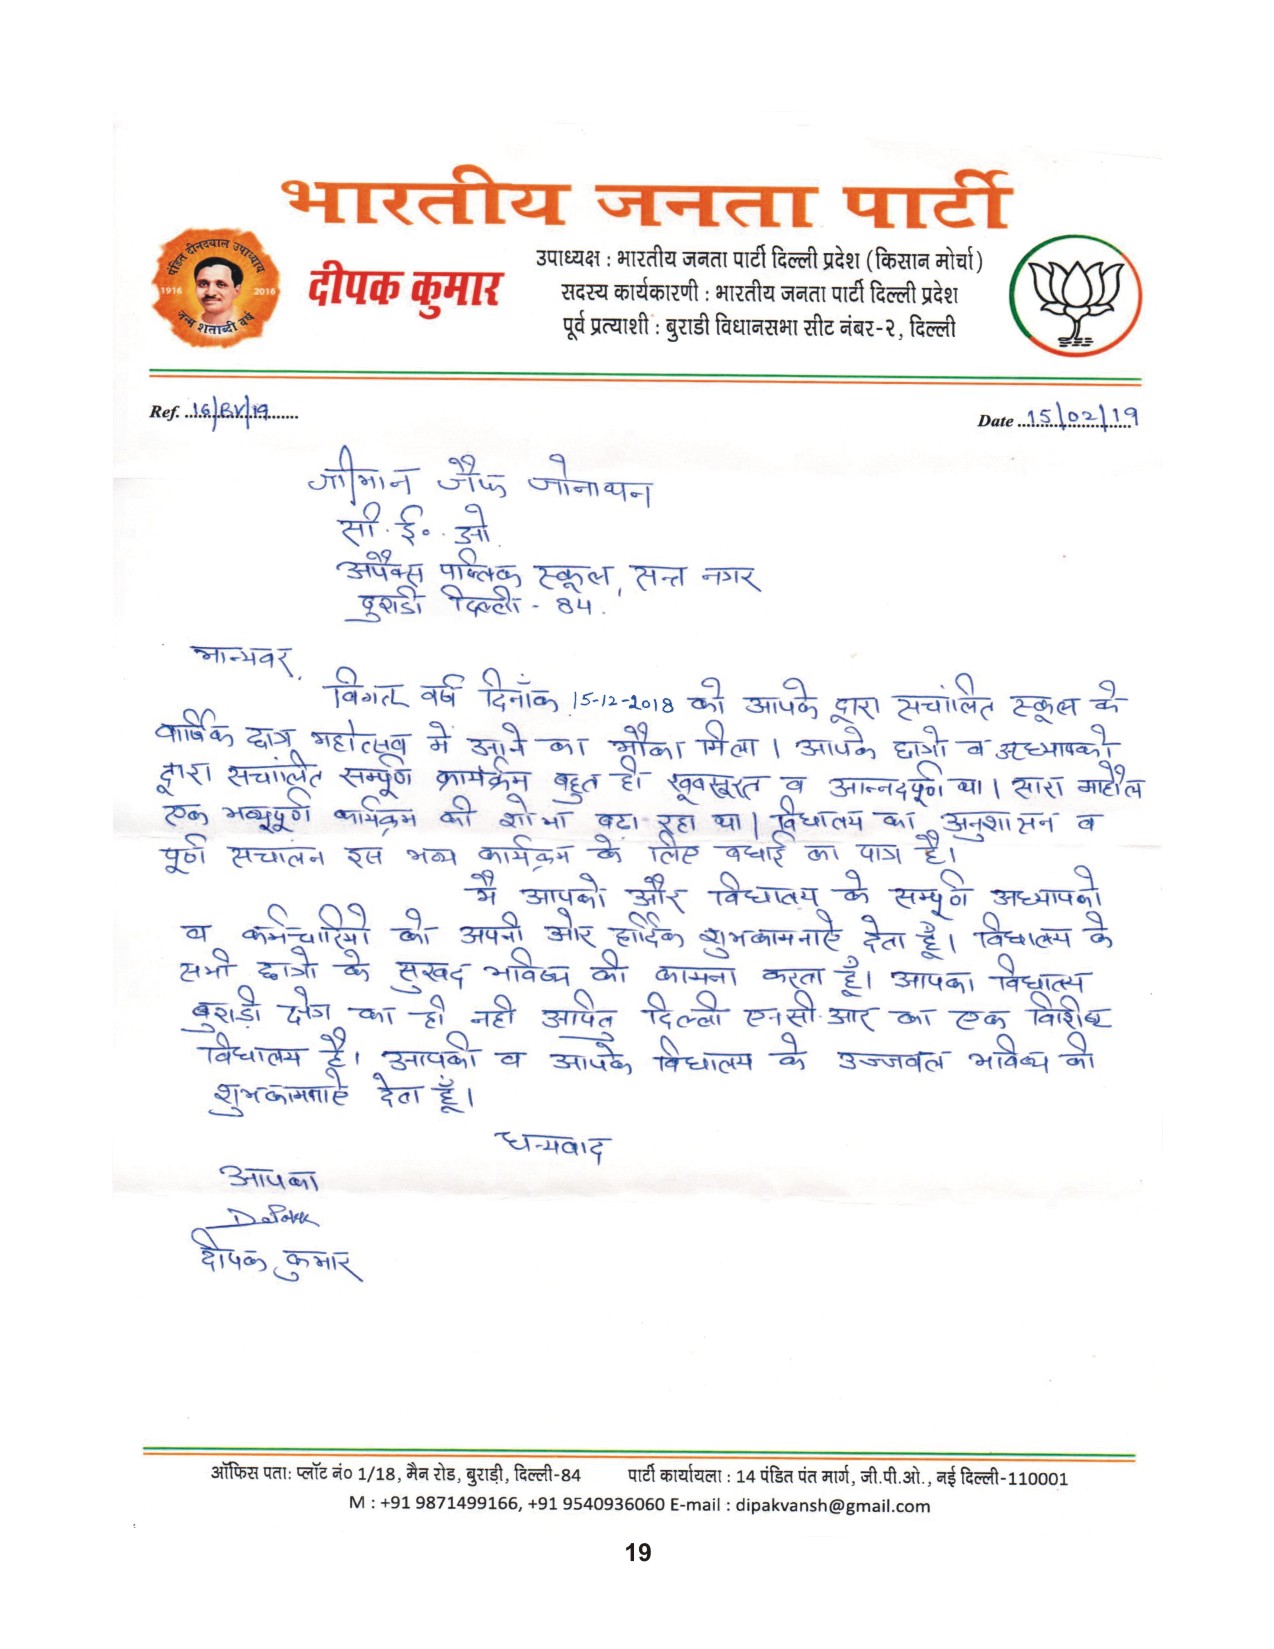 भारतीय जनता पार्टी
पंडित दीनदयाल उपाध्याय
1916 2016
जन्म शताब्दी वर्ष
दीपक कुमार
उपाध्यक्ष : भारतीय जनता पार्टी दिल्ली प्रदेश (किसान मोर्चा)
सदस्य कार्यकारणी : भारतीय जनता पार्टी दिल्ली प्रदेश
पूर्व प्रत्याशी : बुराडी विधानसभा सीट नंबर-२, दिल्ली
Ref. 16/BV/19
Date 15/02/19
श्रीमान जैफ जोनाथन
सी. ई. ओ.
अपैक्स पब्लिक स्कूल, सन्त नगर
बुराडी दिल्ली - 84.
मान्यवर,
विगत वर्ष दिनाँक 15-12-2018 को आपके द्वारा सचांलित स्कूल के
वार्षिक छात्र महोत्सव में आने का मौका मिला। आपके छात्रो व अध्यापको
द्वारा सचांलित सम्पूर्ण कार्यक्रम बहुत ही खूबसूरत व आन्नदपूर्ण था। सारा माहौल
एक भव्यपूर्ण कार्यक्रम की शोभा बढा रहा था। विधालय का अनुशासन व
पूर्ण सचालन इस भव्य कार्यक्रम के लिए बधाई का पात्र है।
मै आपको और विधालय के सम्पूर्ण अध्यापको
व कर्मचारियो को अपनी ओर हार्दिक शुभकामनाऐ देता हूँ। विधालय के
सभी छात्रो के सुखद भविष्य की कामना करता हूँ। आपका विधालय
बुराडी क्षेत्र का ही नही अपितु दिल्ली एन.सी.आर का एक विशिष्ट
विधालय है। आपकी व आपके विधालय के उज्जवल भविष्य की
शुभकामनाऐ देता हूँ।
धन्यवाद
आपका
Deepak
दीपक कुमार
ऑफिस पता: प्लॉट नं० 1/18, मैन रोड, बुराड़ी, दिल्ली-84 पार्टी कार्यायला : 14 पंडित पंत मार्ग, जी.पी.ओ., नई दिल्ली-110001
M : +91 9871499166, +91 9540936060 E-mail : dipakvansh@gmail.com
19